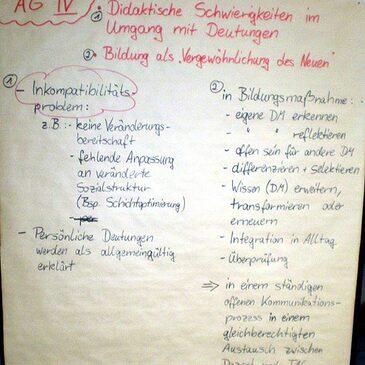 AG IV
① Didaktische Schwierigkeiten im
Umgang mit Deutungen
②• Bildung als "Vergewöhnlichung des Neuen"
①
- Inkompatibilitäts-
problem:
z.B.:- keine Veränderungs-
bereitschaft
- fehlende Anpassung
an veränderte
Sozialstruktur
(Bsp. Schichtoptimierung)
- Persönliche Deutungen
werden als allgemeingültig
erklärt
②
in Bildungsmaßnahme:
- eigene DM erkennen
- " " reflektieren
- offen sein für andere DM
- differenzieren + selektieren
- Wissen (DM) erweitern,
transformieren oder
erneuern
- Integration in Alltag
- Überprüfung
⇒ in einem ständigen
offenen Kommunikations-
prozess in einem
gleichberechtigten
Austausch zwischen
Dozent und